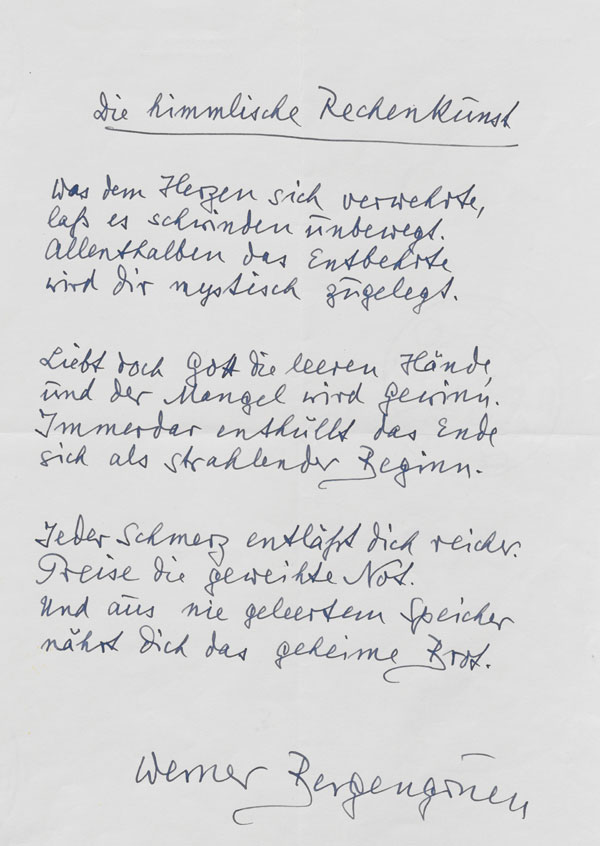 Die himmlische Rechenkunst
Was dem Herzen sich verwehrte,
laß es schwinden unbewegt.
Allenthalben das Entbehrte
wird dir mystisch zugelegt.
Liebt doch Gott die leeren Hände,
und der Mangel wird Gewinn.
Immerdar enthüllt das Ende
sich als strahlender Beginn.
Jeder Schmerz entläßt dich reicher.
Preise die geweihte Not.
Und aus nie geleertem Speicher
nährt dich das geheime Brot.
Werner Bergengruen